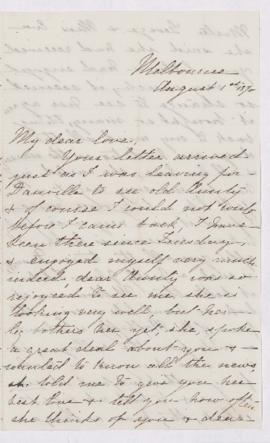 Melbourne
August 1st
My dear love.
Your letter arrived
just as I was leaving for
Danville to see old Aunty
& of course I could not write
before I came back, I have
been there since Tuesday,
& enjoyed myself very much
indeed dear Aunty was so
rejoyced to see me, she is
looking very well, but her
bothers her yet, she spoke
a great deal about you &
wanted to know all the news
& told me to give you her
best love & tell you how often
she thinks of you & dear